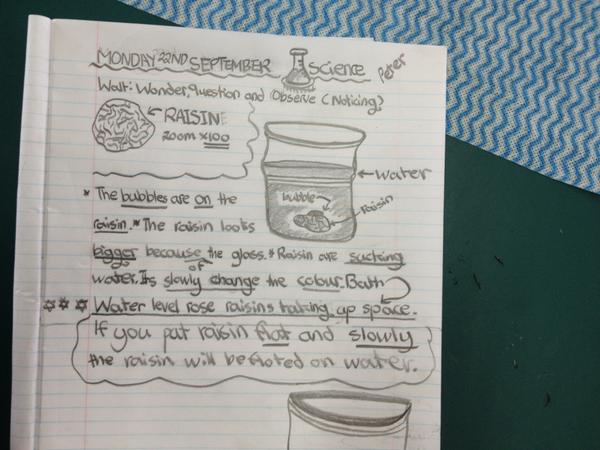 MONDAY 22ND SEPTEMBER Science Peter
Walt: Wonder, question and Observe (Noticing)
RAISIN
zoom x100
Water
bubble
raisin
* The bubbles are on the
raisin. * The raisin looks
bigger because of the glass. * Raisin are sucking
water. Its slowly change the colour. Bath
*** Water level rose raisins taking up space.
If you put raisin flat and slowly
the raisin will be floted on water.